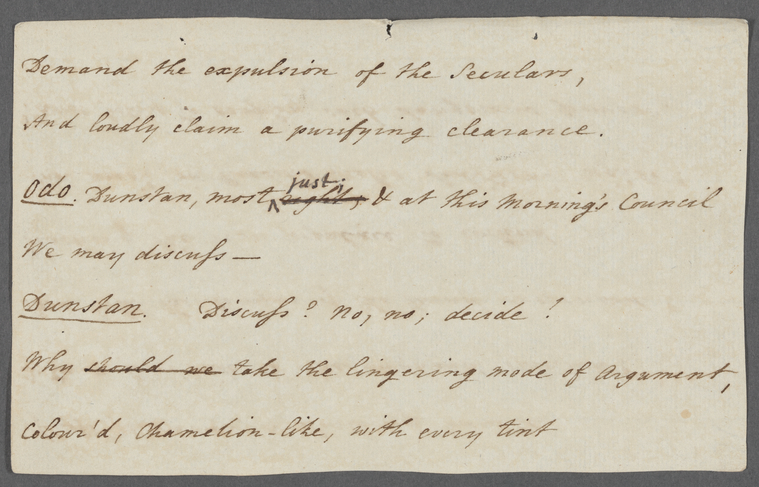 Demand the expulsion of the Seculars,
And loudly claim a purifying clearance.
Odo. Dunstan, most just; right, & at this Morning's Council
We may discuſs —
Dunstan. Discuſs? No, no; decide!
Why should we take the lingering mode of Argument,
Colour'd, Chamelion-like, with every tint